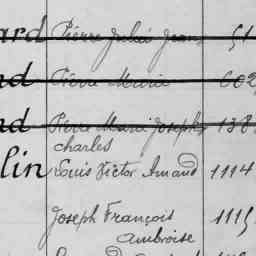 ard Pierre Julien Jean 51
nd Pierre Marie 602
nd Pierre Marie Joseph 138
charles
lin Louis Victor Amand 1114
Joseph François 1115
Ambroise